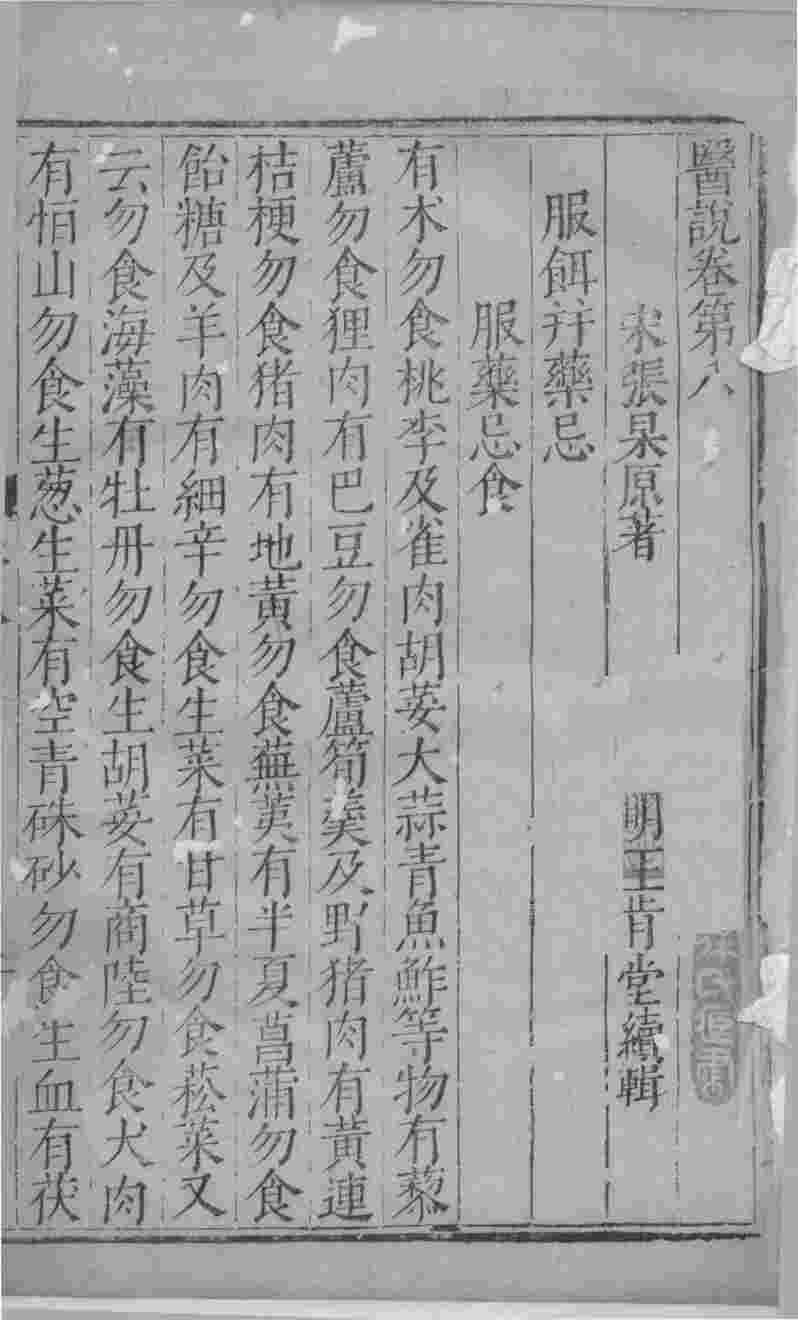 醫說卷第八
宋張杲原著 明王肯堂續輯
服餌并藥忌
服藥忌食
有术勿食桃李及雀肉胡荽大蒜青魚鮓等物有藜
蘆勿食狸肉有巴豆勿食蘆筍羮及野猪肉有黃連
桔梗勿食猪肉有地黃勿食蕪荑有半夏菖蒲勿食
飴糖及羊肉有細辛勿食生菜有甘草勿食菘菜又
云勿食海藻有牡丹勿食生胡荽有商陸勿食犬肉
有恒山勿食生葱生菜有空青硃砂勿食生血有茯